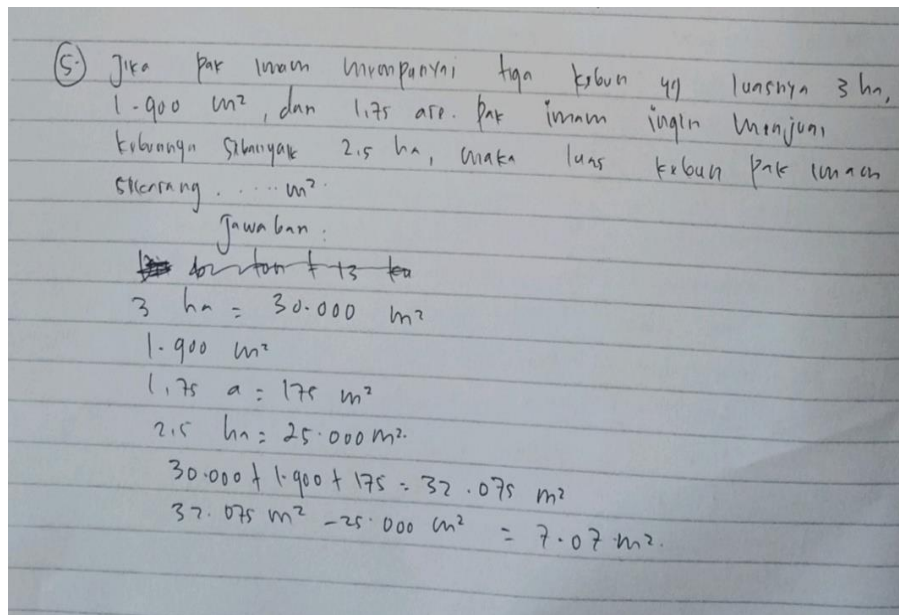 5. Jika pak imam mempunyai tiga kebun yg luasnya 3 ha,
1.900 m², dan 1,75 are. Pak imam ingin menjual
kebunnya sebanyak 2,5 ha, maka luas kebun pak imam
sekarang ...... m².
Jawaban :
3 ha = 30.000 m²
1.900 m²
1,75 a = 175 m²
2,5 ha = 25.000 m².
30.000 + 1.900 + 175 = 32.075 m²
32.075 m² - 25.000 m² = 7.07 m².